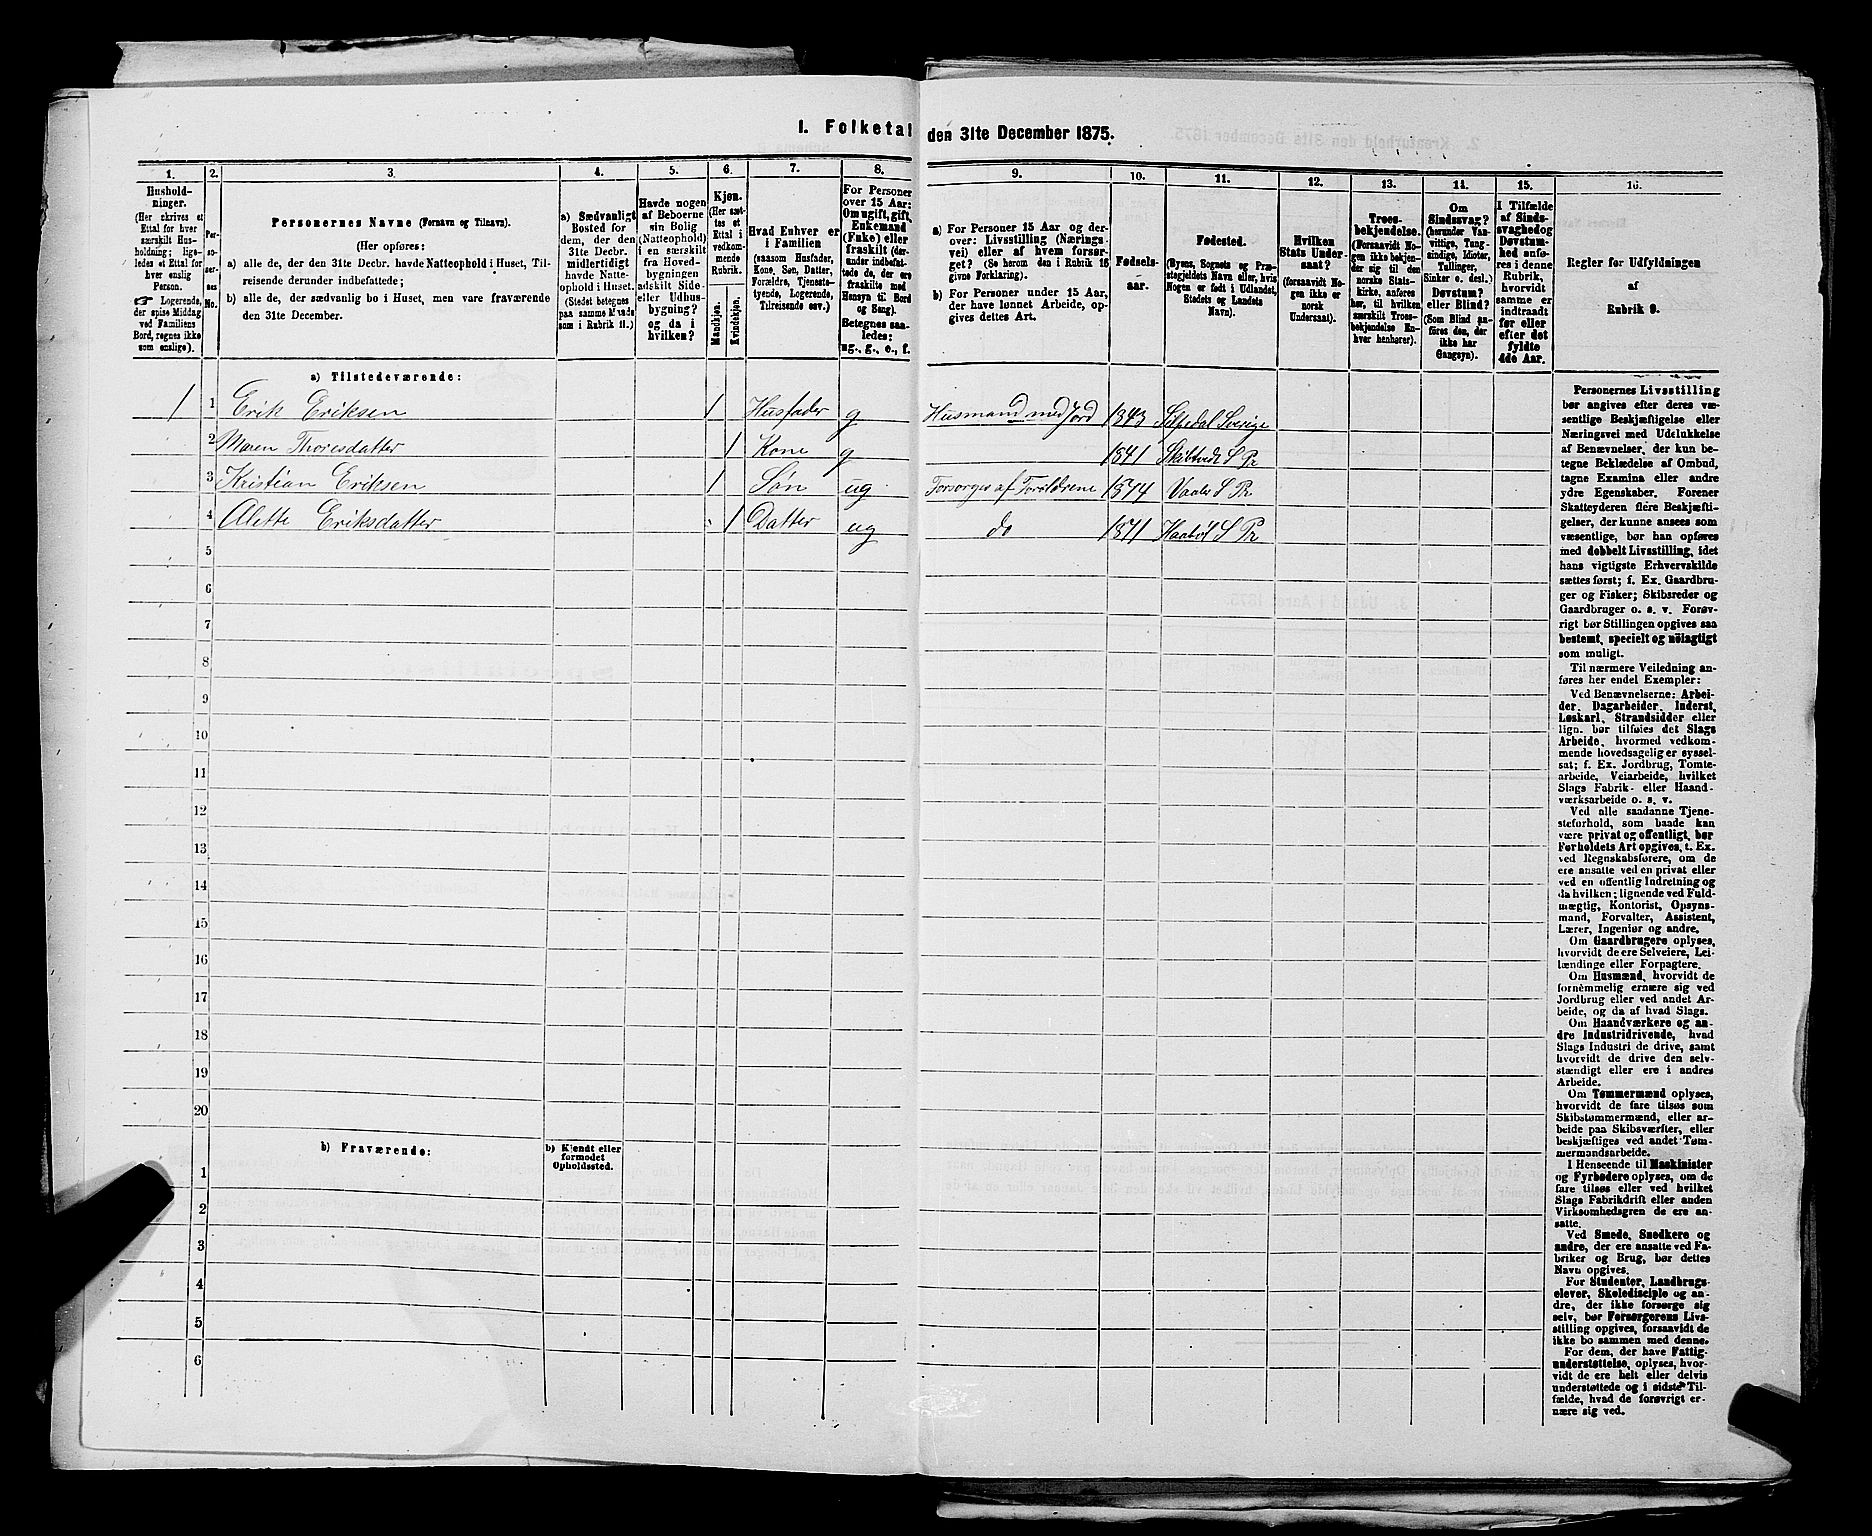 1. Folketal den 31te December 1875.
1. 2. 3. 4. 5. 6. 7. 8. 9. 10. 11. 12. 13. 14. 15. 16.
Hushold-
ninger.
(Her skrives et
Ettal for hver
særskilt Hus-
holdning; lige-
ledes et Ettal for
hver enslig
Person.
☞ Logerende,
der spise Middag
ved Familiens
Bord, regnes ikke
som enslige).
Per-
so-
ner-
nes
No.
Personernes Navne (Fornavn og Tilnavn).
(Her opføres:
a) alle de, der den 31te Decbr. havde Natteophold i Huset, Til-
reisende derunder indbefattede;
b) alle de, der sædvanlig bo i Huset, men vare fraværende
den 31te December.
a) Sædvanligt
Bosted for
dem, der den
31te Decbr.
midlertidigt
havde Natte-
ophold i Huset.
(Stedet betegnes
paa samme Maade
som i Rubrik 11.)
Havde nogen
af Beboerne
sin Bolig
(Natteophold)
i en særskilt
fra Hoved-
bygningen
adskilt Side-
eller Udhus-
bygning?
og da i
hvilken?
Kjøn.
(Her sæt-
tes et
Ettal i
vedkom-
mende
Rubrik.
Mandkjøn.
Kvindekjøn.
Hvad Enhver er
i Familien
(saasom Husfader,
Kone, Søn, Datter,
Forældre, Tjeneste-
tyende, Logerende,
Tilreisende osv.)
For Personer
over 15 Aar:
Om ugift, gift,
Enkemand
(Enke) eller
fraskilt (der-
under indbefat-
tede de, der ere
fraskilte med
Hensyn til Bord
og Seng).
Betegnes saa-
ledes:
ug., g., e., f.
a) For Personer 15 Aar og der-
over: Livsstilling (Nærings-
vei) eller af hvem forsør-
get? (Se herom den i Rubrik 16
givne Forklaring).
b) For Personer under 15 Aar,
der have lønnet Arbeide, op-
gives dettes Art.
Fødsels-
aar.
Fødested.
(Byens, Sognets og Præ-
stegjeldets Navn eller, hvis
Nogen er født i Udlandet,
Stedets og Landets
Navn).
Hvilken
Stats Under-
saat?
(forsaavidt No-
gen ikke er
norsk
Undersaat).
Troes-
bekjendelse.
(Forsaavidt No-
gen ikke bekjen-
der sig til den
norske Stats-
kirke, anføres
her, til hvilken
særskilt Troes-
bekjendelse En-
hver henhører).
Om
Sindssvag?
(herunder Van-
vittige, Tung-
sindige, Idioter,
Tullinger,
Sinker o. desl.)
Døvstum?
eller Blind?
(Som Blind an-
føres den, der
ikke har
Gangsyn).
I Tilfælde
af Sinds-
svaghed og
Døvstum-
hed anfø-
res i denne
Rubrik,
hvorvidt
samme er
indtraadt
før eller
efter det
fyldte
4de Aar.
Regler for Udfyldningen
af
Rubrik 9.
a) Tilstedeværende:
1 1 Erik Eriksen 1 Husfader g Husmand med Jord 1843 Sverige
2 Maren Thoresdatter 1 Kone g 1841 Skibtvedt S Pr
3 Kristian Eriksen 1 Søn ug Forsørges af Forældrene 1874 Vaaler S Pr
4 Alette Eriksdatter 1 Datter ug do 1871 Haabøl S Pr
5
6
7
8
9
10
11
12
13
14
15
16
17
18
19
20
b) Fraværende:
b) Kjendt eller
formodet
Opholdssted.
1
2
3
4
5
6
Personernes Livsstilling
bør angives efter deres væ-
sentlige Beskjæftigelse eller
Næringsvei med Udelukkelse
af Benævnelser, der kun be-
tegne Beklædelse af Ombud,
tagne Examina eller andre
ydre Egenskaber. Forener
Skatteyderen flere Beskjæfti-
gelser, der kunne ansees som
væsentlige, bør han opføres
med dobbelt Livsstilling, idet
hans vigtigste Erhvervskilde
sættes først; f. Ex. Gaardbru-
ger og Fisker; Skibsreder og
Gaardbruger o. s. v. Forøv-
rigt bør Stillingen opgives saa
bestemt, specielt og nöiagtigt
som muligt.
Til nærmere Veiledning an-
føres her endel Exempler:
Ved Benævnelserne: Arbei-
der, Dagarbeider, Inderst,
Løskarl, Strandsidder eller
lign. bør tilføies det Slags
Arbeide, hvormed vedkom-
mende hovedsagelig er syssel-
sat; f. Ex. Jordbrug, Tomte-
arbeide, Veiarbeide, hvilket
Slags Fabrik- eller Haand-
værksarbeide o. s. v.
Ved alle saadanne Tjene-
steforhold, som baade kan
være privat og offentligt, bør
Forholdets Art opgives, t. Ex.
ved Regnskabsførere, om de
ere ansatte ved en privat eller
ved en offentlig Indretning og
da hvilken; lignende ved Fuld-
mægtig, Kontorist, Opsyns-
mand, Forvalter, Assistent,
Lærer, Ingeniør og andre.
Om Gaardbrugere oplyses,
hvorvidt de ere Selveiere, Lei-
lændinge eller Forpagtere.
Om Husmænd, hvorvidt de
fornemmelig ernære sig ved
Jordbrug eller ved andet Ar-
beide, og da af hvad Slags.
Om Haandværkere og an-
dre Industridrivende, hvad
Slags Industri de drive, samt
hvorvidt de drive den selv-
stændigt eller ere i andres
Arbeide.
Om Tømmermænd oplyses,
hvorvidt de fare tilsøs som
Skibstømmermænd, eller ar-
beide paa Skibsværfter, eller
beskjæftiges ved andet Tøm-
mermandsarbeide.
I Henseende til Maskinister
og Fyrbødere oplyses, om de
fare tilsøs eller ved hvilket
Slags Fabrikdrift eller anden
Virksomhedsgren de ere an-
satte.
Ved Smede, Snedkere og
andre, der ere ansatte ved Fa-
briker og Brug, bør dettes
Navn opgives.
For Studenter, Landbrugs-
elever, Skoledisciple og an-
dre, der ikke forsørge sig
selv, bør Forsørgerens Livs-
stilling opgives, forsaavidt de
ikke bo sammen med denne.
For dem, der have Fattig-
understøttelse, oplyses, hvor-
vidt de ere helt eller delvis
understøttede og i sidste Til-
fælde, hvad de forøvrigt er-
nære sig ved.